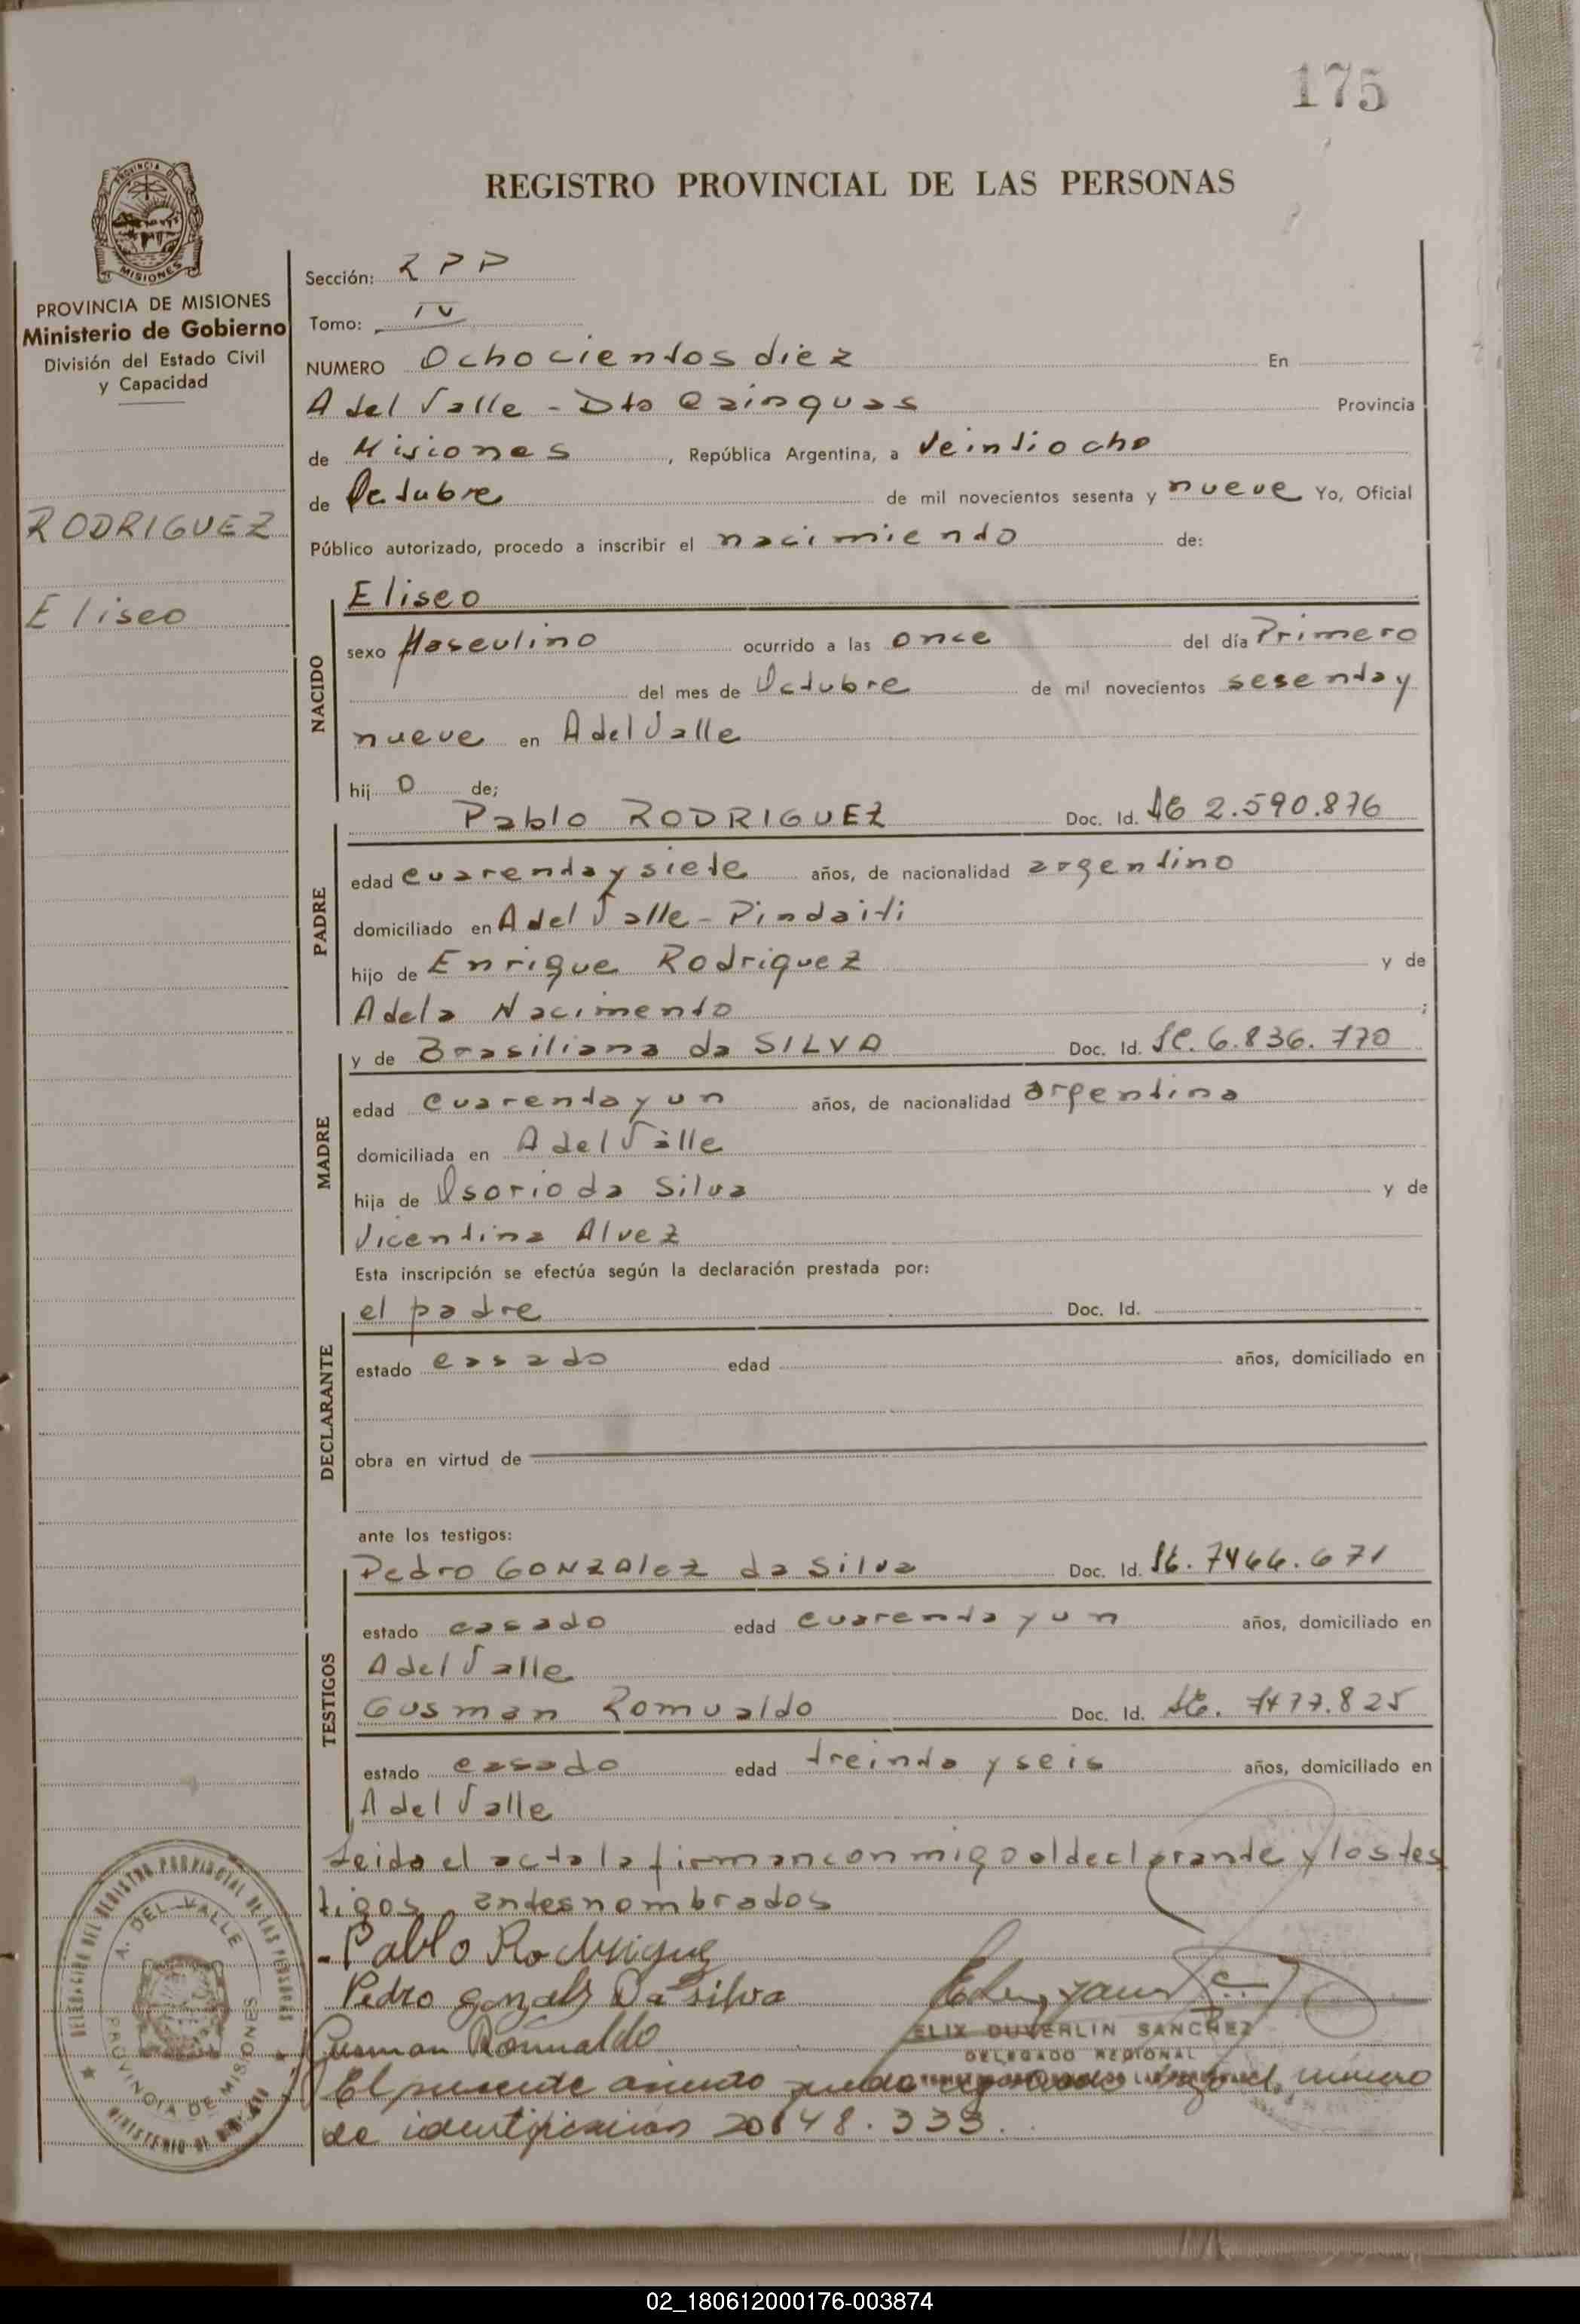 175
REGISTRO PROVINCIAL DE LAS PERSONAS
MISIONES
PROVINCIA DE MISIONES
Ministerio de Gobierno
División del Estado Civil
y Capacidad
RODRIGUEZ
Eliseo
Sección: RPP
Tomo: IV
NUMERO Ochocientos diez En
A del Valle - Dto Cainguas Provincia
de Misiones, República Argentina, a Veintiocho
de Octubre de mil novecientos sesenta y nueve Yo, Oficial
Público autorizado, procedo a inscribir el nacimiento de:
NACIDO
Eliseo
sexo Masculino ocurrido a las once del día Primero
del mes de Octubre de mil novecientos sesenta y
nueve en A del Valle
hij o de;
PADRE
Pablo RODRIGUEZ Doc. Id. 2.590.876
edad cuarenta y siete años, de nacionalidad argentino
domiciliado en A del Valle - Pindaiti
hijo de Enrique Rodriguez y de
Adela Nacimento ;
MADRE
y de Brasiliana da SILVA Doc. Id. 6.836.770
edad cuarenta y un años, de nacionalidad argentina
domiciliada en A del Valle
hija de Osorio da Silva y de
Vicentina Alvez
Esta inscripción se efectúa según la declaración prestada por:
DECLARANTE
el padre Doc. Id.
estado casado edad años, domiciliado en
obra en virtud de
ante los testigos:
TESTIGOS
Pedro GONZALEZ da Silva Doc. Id. 7466.671
estado casado edad cuarenta y un años, domiciliado en
A del Valle
Gusman Romualdo Doc. Id. 7477.825
estado casado edad treinta y seis años, domiciliado en
A del Valle
Leida el acta la firman conmigo el declarante y los tes
tigos antes nombrados
Pablo Rodriguez
Pedro Gonzalz Da silva
Gusman Romualdo
ELIX DUVERLIN SANCHEZ
DELEGADO REGIONAL
El presente asiento queda bajo el número
de identificación 20148.333.
DELEGACION DEL REGISTRO PROVINCIAL DE LAS PERSONAS
A. DEL VALLE
PROVINCIA DE MISIONES
MINISTERIO DE GOBIERNO
02_180612000176-003874